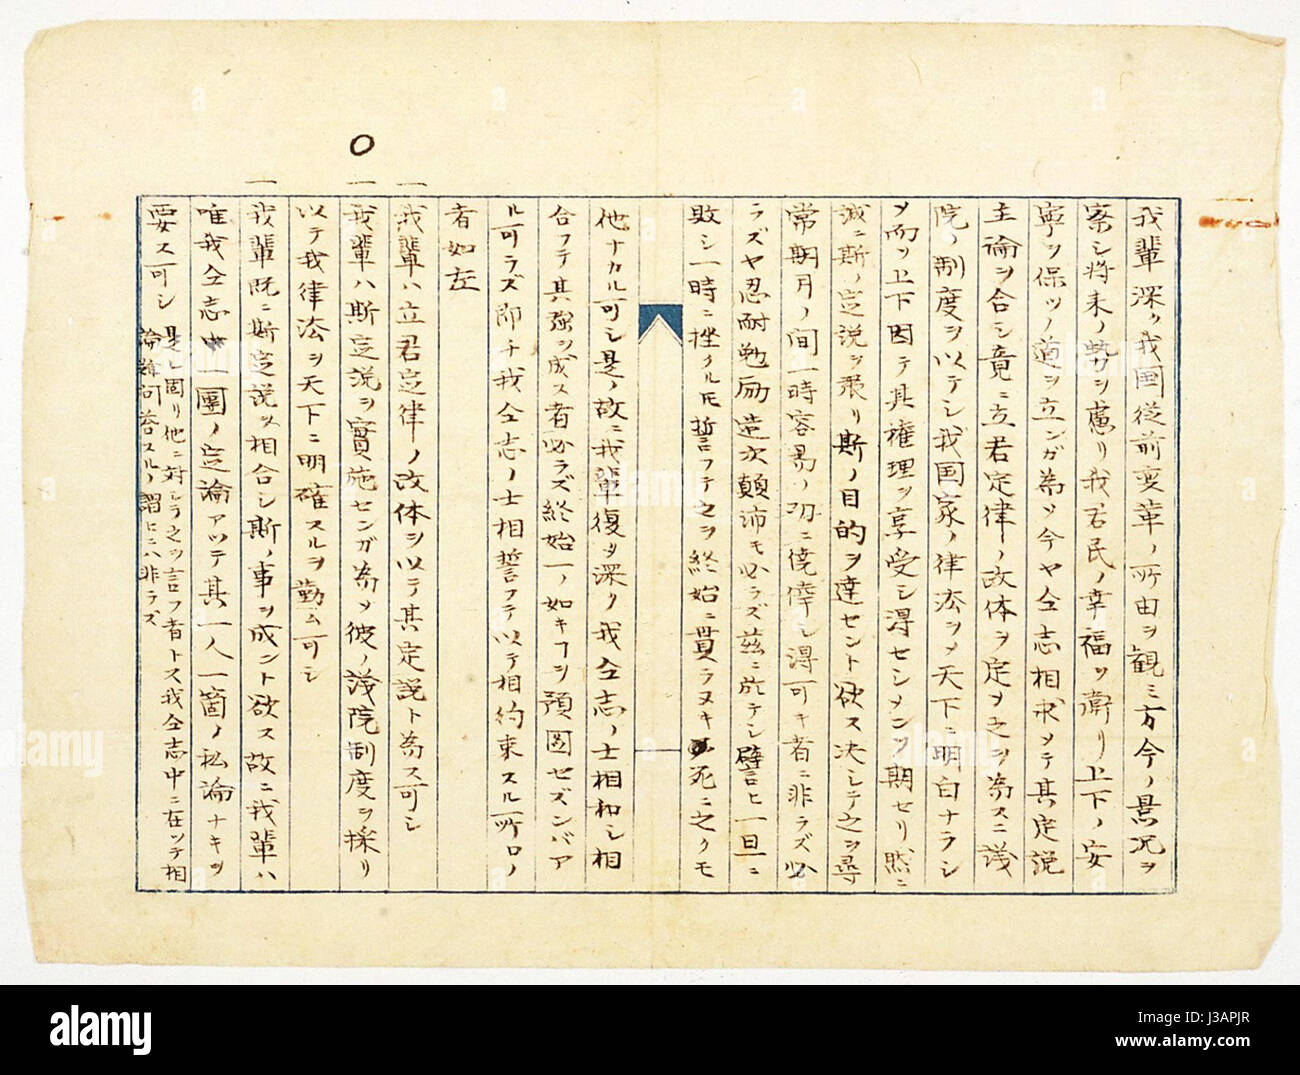 我輩深ク我国従前変革ノ所由ヲ観ミ方今ノ景況ヲ
察シ将来ノ勢ヲ慮リ我君民ノ幸福ヲ衛リ上下ノ安
寧ヲ保ツノ道ヲ立ンガ為メ今ヤ仝志相求メテ其定説
主論ヲ合シ竟ニ立君定律ノ政体ヲ定ヲ之ヲ為スニ議
院ノ制度ヲ以テシ我国家ノ律法ヲメ天下ニ明白ナラシ
メ而ソ上下因テ其権理ヲ享受シ得セシメンヿ期セリ然ニ
誠ニ斯ノ定説ヲ張リ斯ノ目的ヲ達セント欲ス決シテ之ヲ尋
常期月ノ間一時容易ノ功ニ僥倖シ得可キ者ニ非ラズ必
ラズヤ忍耐勉励造次顛沛モ必ラズ茲ニ於テシ譬ヒ一旦ニ
敗シ一時ニ挫クルモ誓フテ之ヲ終始ニ貫ラヌキ死ニ之クモ
他ナカル可シ是ノ故ニ我輩復タ深ク我仝志ノ士相和シ相
合フテ其強ヲ成ス者必ラズ終始一ノ如キヿヲ預図セズンバア
ル可ラズ即チ我仝志ノ士相誓フテ以テ相約束スル所ロノ
者如左
一我輩ハ立君定律ノ政体ヲ以テ其定説ト為ス可シ
○
一我輩ハ斯定説ヲ實施センガ為メ彼ノ議院制度ヲ採リ
以テ我律法ヲ天下ニ明確スルヲ勤ム可シ
一我輩既ニ斯定説ヲ相合シ斯ノ事ヲ成ント欲ス故ニ我輩ハ
唯我仝志中一團ノ定論アツテ其一人一箇ノ私論ナキヲ
要ス可シ 是レ固リ他ニ対シテ之ヲ言フ者トス我仝志中ニ在ツテ相
論難問答スルノ謂ヒニハ非ラズ
alamy
Image ID: J3APJR
www.alamy.com